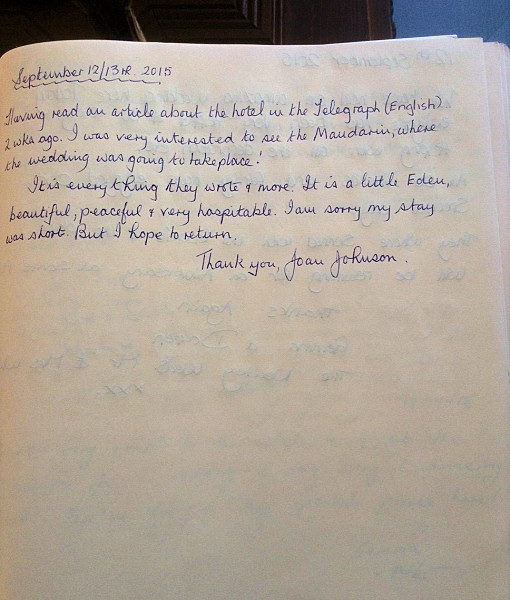 September 12/13th. 2015
Having read an article about the hotel in the Telegraph (English)
2 wks ago. I was very interested to see the Mandarin, where
the wedding was going to take place!
It is everything they wrote & more. It is a little Eden,
beautiful, peaceful & very hospitable. I am sorry my stay
was short. But I hope to return,
Thank you, Joan Johnson.